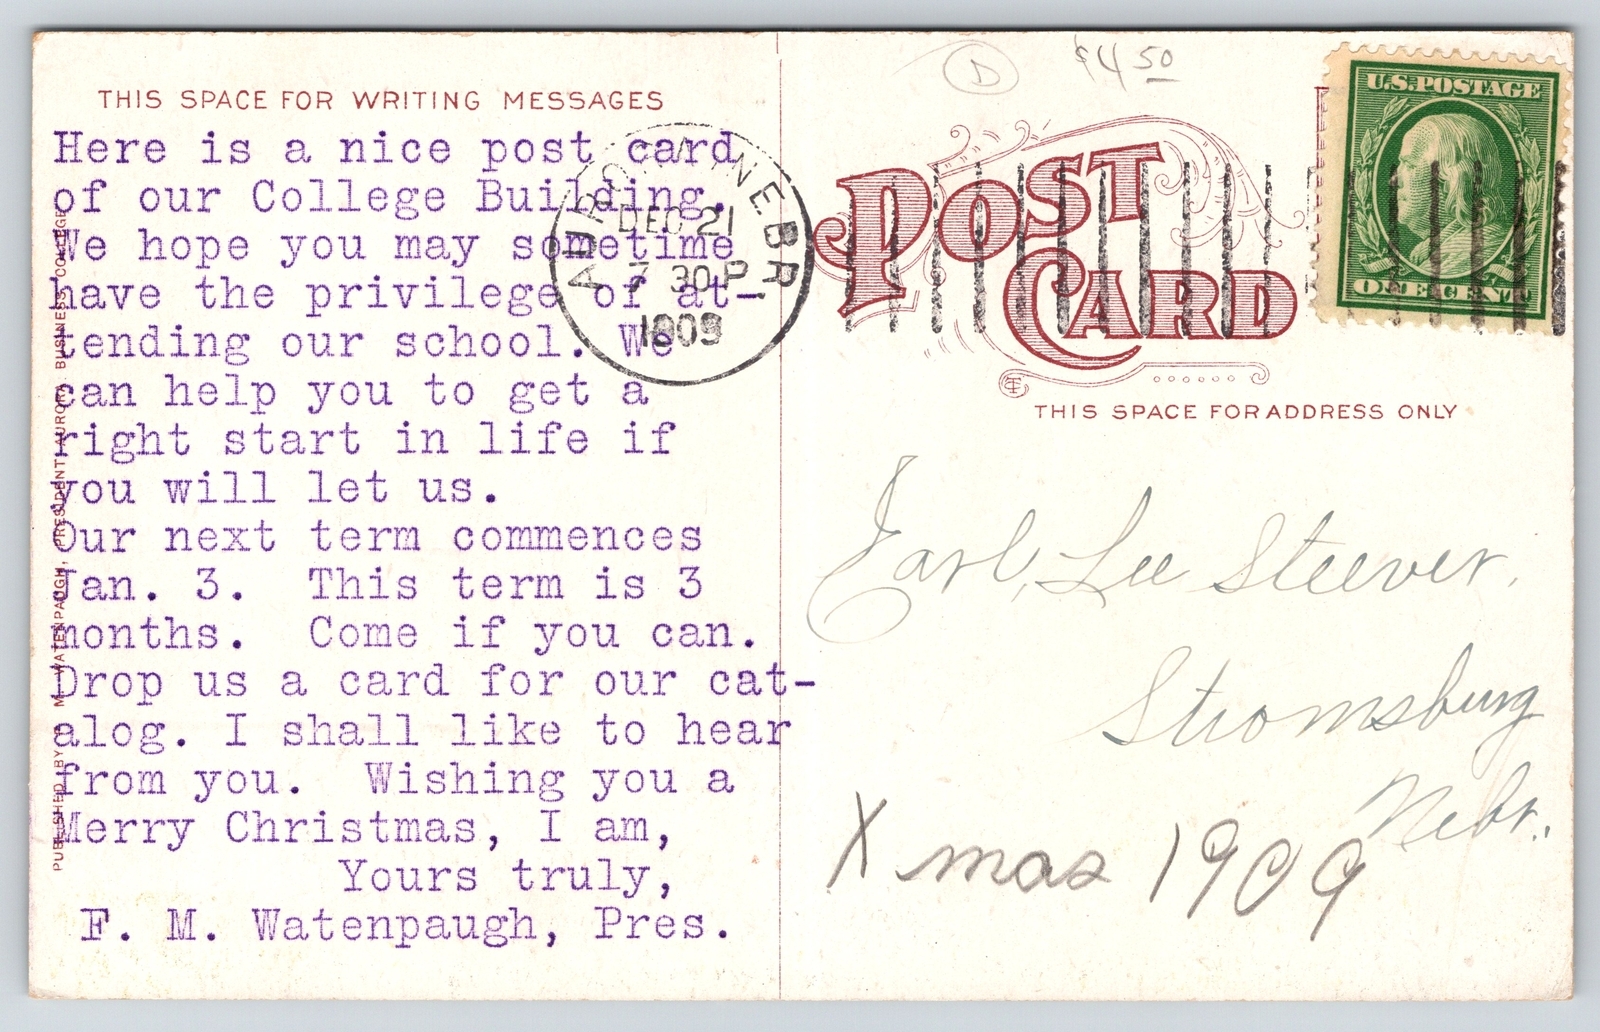 THIS SPACE FOR WRITING MESSAGES
Here is a nice post card
of our College Building.
We hope you may sometime
have the privilege of at-
tending our school. We
can help you to get a
right start in life if
you will let us.
Our next term commences
Jan. 3.  This term is 3
months.  Come if you can.
Drop us a card for our cat-
alog. I shall like to hear
from you.  Wishing you a
Merry Christmas, I am,
Yours truly,
F. M. Watenpaugh, Pres.
PUBLISHED BY F. M. WATENPAUGH, PRESIDENT AURORA BUSINESS COLLEGE
AURORA NEBR
DEC 21
7 30 P
1909
D
$4.50
U.S. POSTAGE
ONE CENT
POST
CARD
THIS SPACE FOR ADDRESS ONLY
Earl Lee Steever.
Stromsburg
Nebr.
Xmas 1909